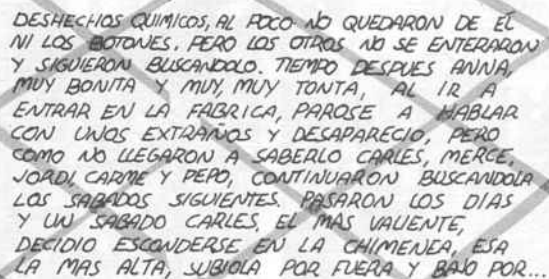 DESHECHOS QUIMICOS, AL POCO NO QUEDARON DE EL
NI LOS BOTONES. PERO LOS OTROS NO SE ENTERARON
Y SIGUIERON BUSCANDOLO. TIEMPO DESPUES ANNA,
MUY BONITA Y MUY, MUY TONTA, AL IR A
ENTRAR EN LA FABRICA, PAROSE A HABLAR
CON UNOS EXTRAÑOS Y DESAPARECIO, PERO
COMO NO LLEGARON A SABERLO CARLES, MERCE,
JORDI, CARME Y PEPO, CONTINUARON BUSCANDOLA
LOS SABADOS SIGUIENTES. PASARON LOS DIAS
Y UN SABADO CARLES, EL MAS VALIENTE,
DECIDIO ESCONDERSE EN LA CHIMENEA, ESA
LA MAS ALTA, SUBIOLA POR FUERA Y BAJO POR...